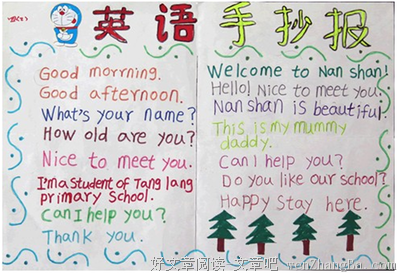 英语手抄报
Good morrning.
Good afternoon.
What's your name?
How old are you?
Nice to meet you.
I'm a student of Tang lang
primary School.
Can I help you?
Thank you.
Welcome to Nan shan!
Hello! Nice to meet you.
Nan shan is beautiful.
This is my mummy
daddy.
Can I help you?
Do you like our school?
Happy Stay here.
好文章阅读 文章吧